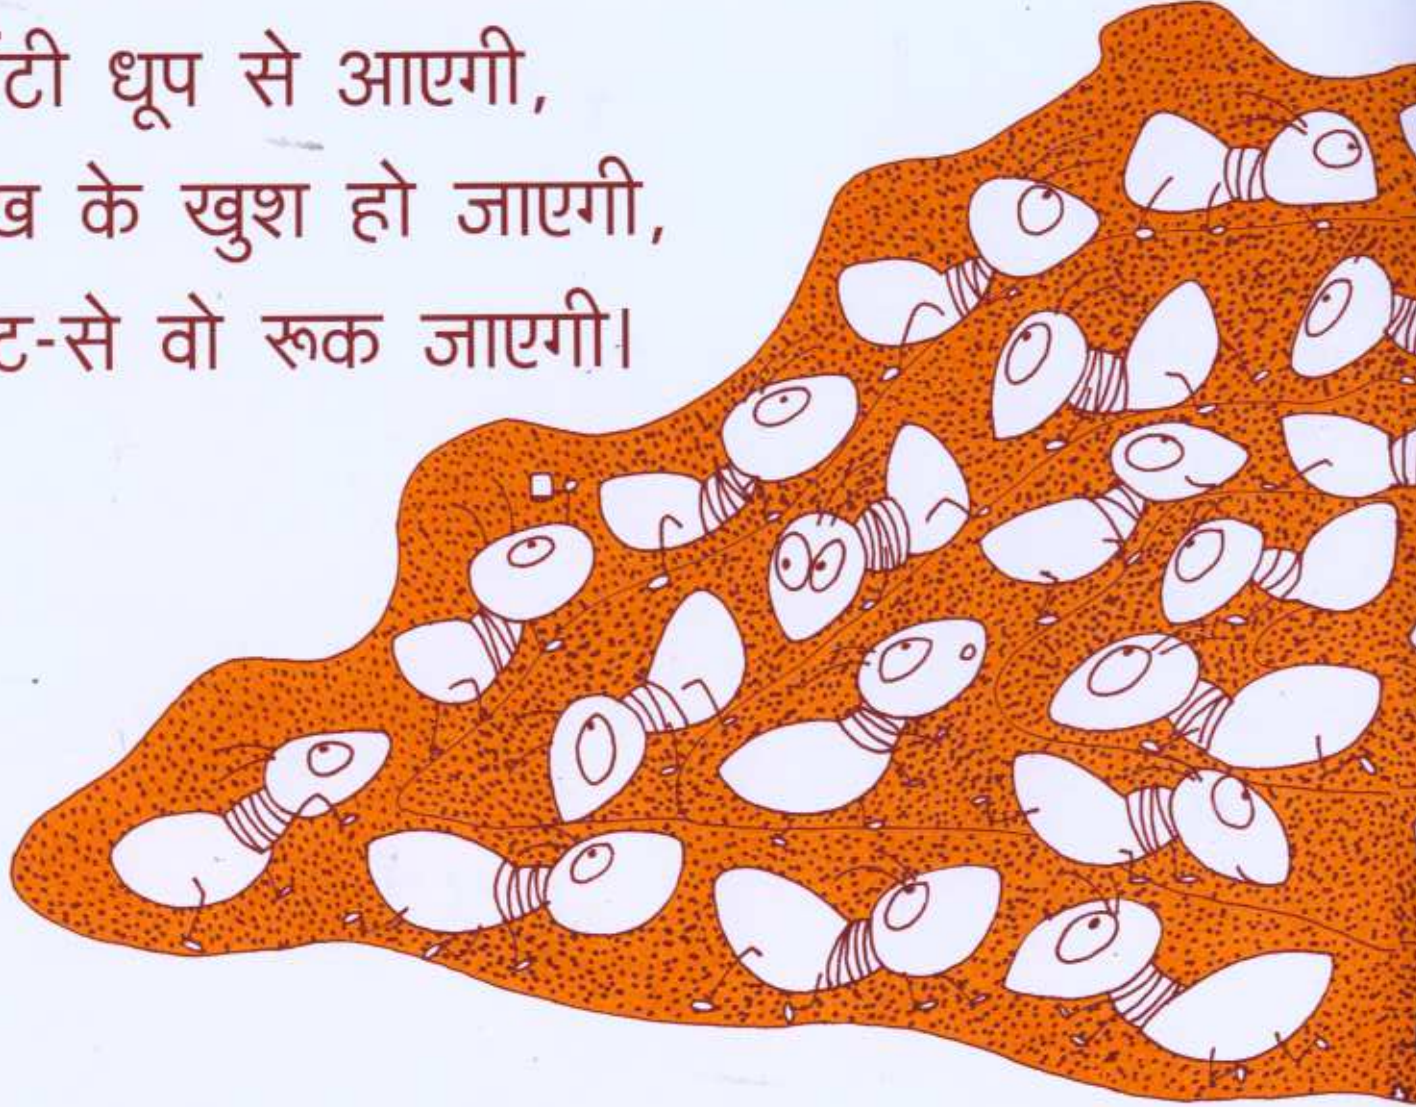 धूप से आएगी,
के खुश हो जाएगी,
वो रूक जाएगी।